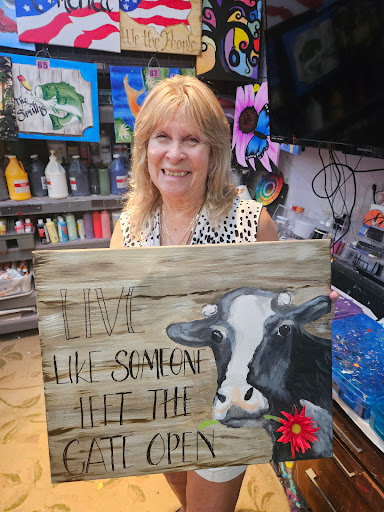 America
We the People
65
62
The Smiths
LIVE
LIKE SOMEONE
LEFT THE
GATE OPEN